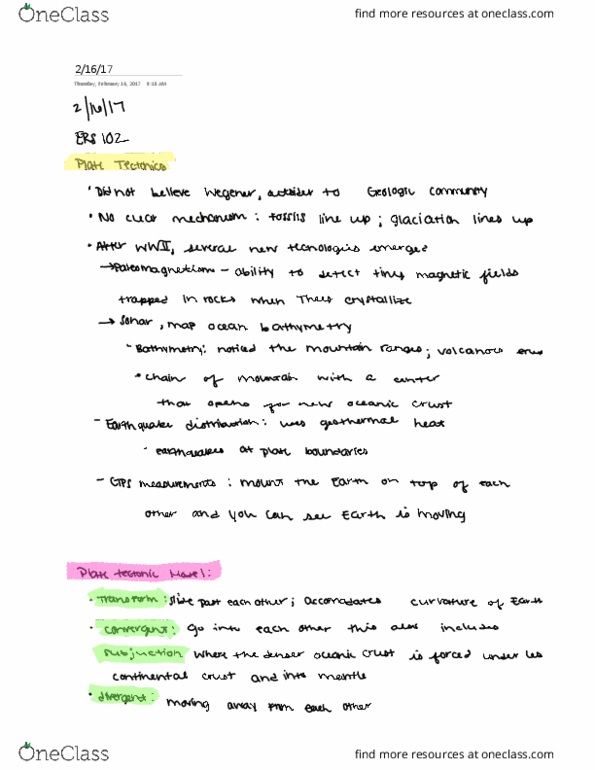 OneClass
find more resources at oneclass.com
2/16/17
Thursday, February 16, 2017
2/16/17
ERS 102
Plate Tectonics
• Did not believe Wegener, outsider to Geologic community
• No clear mechanism: fossils line up; glaciation lines up
• After WWII, several new tecnologies emerge?
→ Paleomagnetism - ability to detect tiny magnetic fields
trapped in rocks when They crystallize
→ Sonar, map ocean bathymetry
- Bathymetry: noticed the mountain ranges; volcanoes
• chain of mountain with a center
that opens for new oceanic crust
- Earthquake distribution: was geothermal heat
• earthquakes at plate boundaries
- GPS measurements: mount the Earth on top of each
other and you can see Earth is moving
Plate tectonic Model:
• Transform: slide past each other; accomadates curvature of Earth
• Convergent: go into each other this also includes
subjuction where the denser oceanic crust is forced under
continental crust and into mantle
• divergent: moving away from each other
OneClass
find more resources at oneclass.com